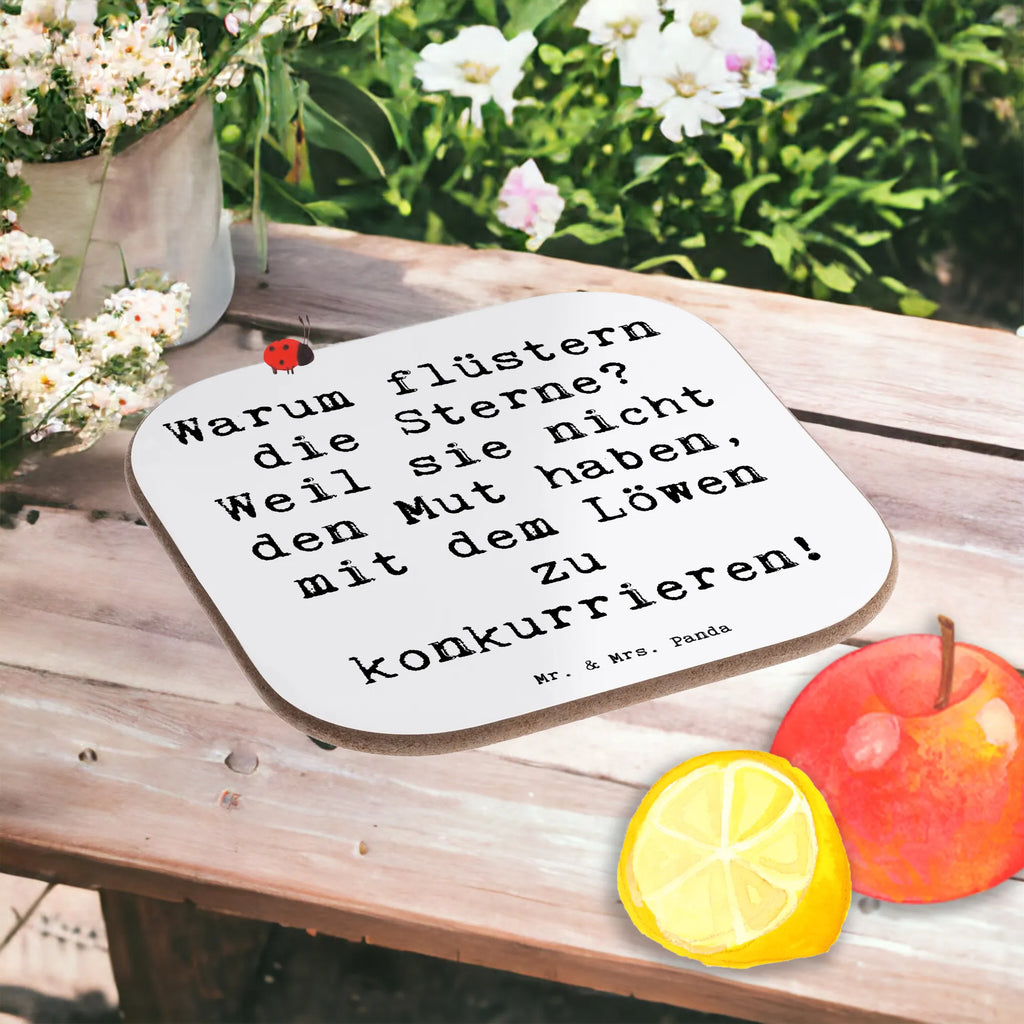 Warum flüstern
die Sterne?
Weil sie nicht
den Mut haben,
mit dem Löwen
zu
konkurrieren!
Mr. & Mrs. Panda